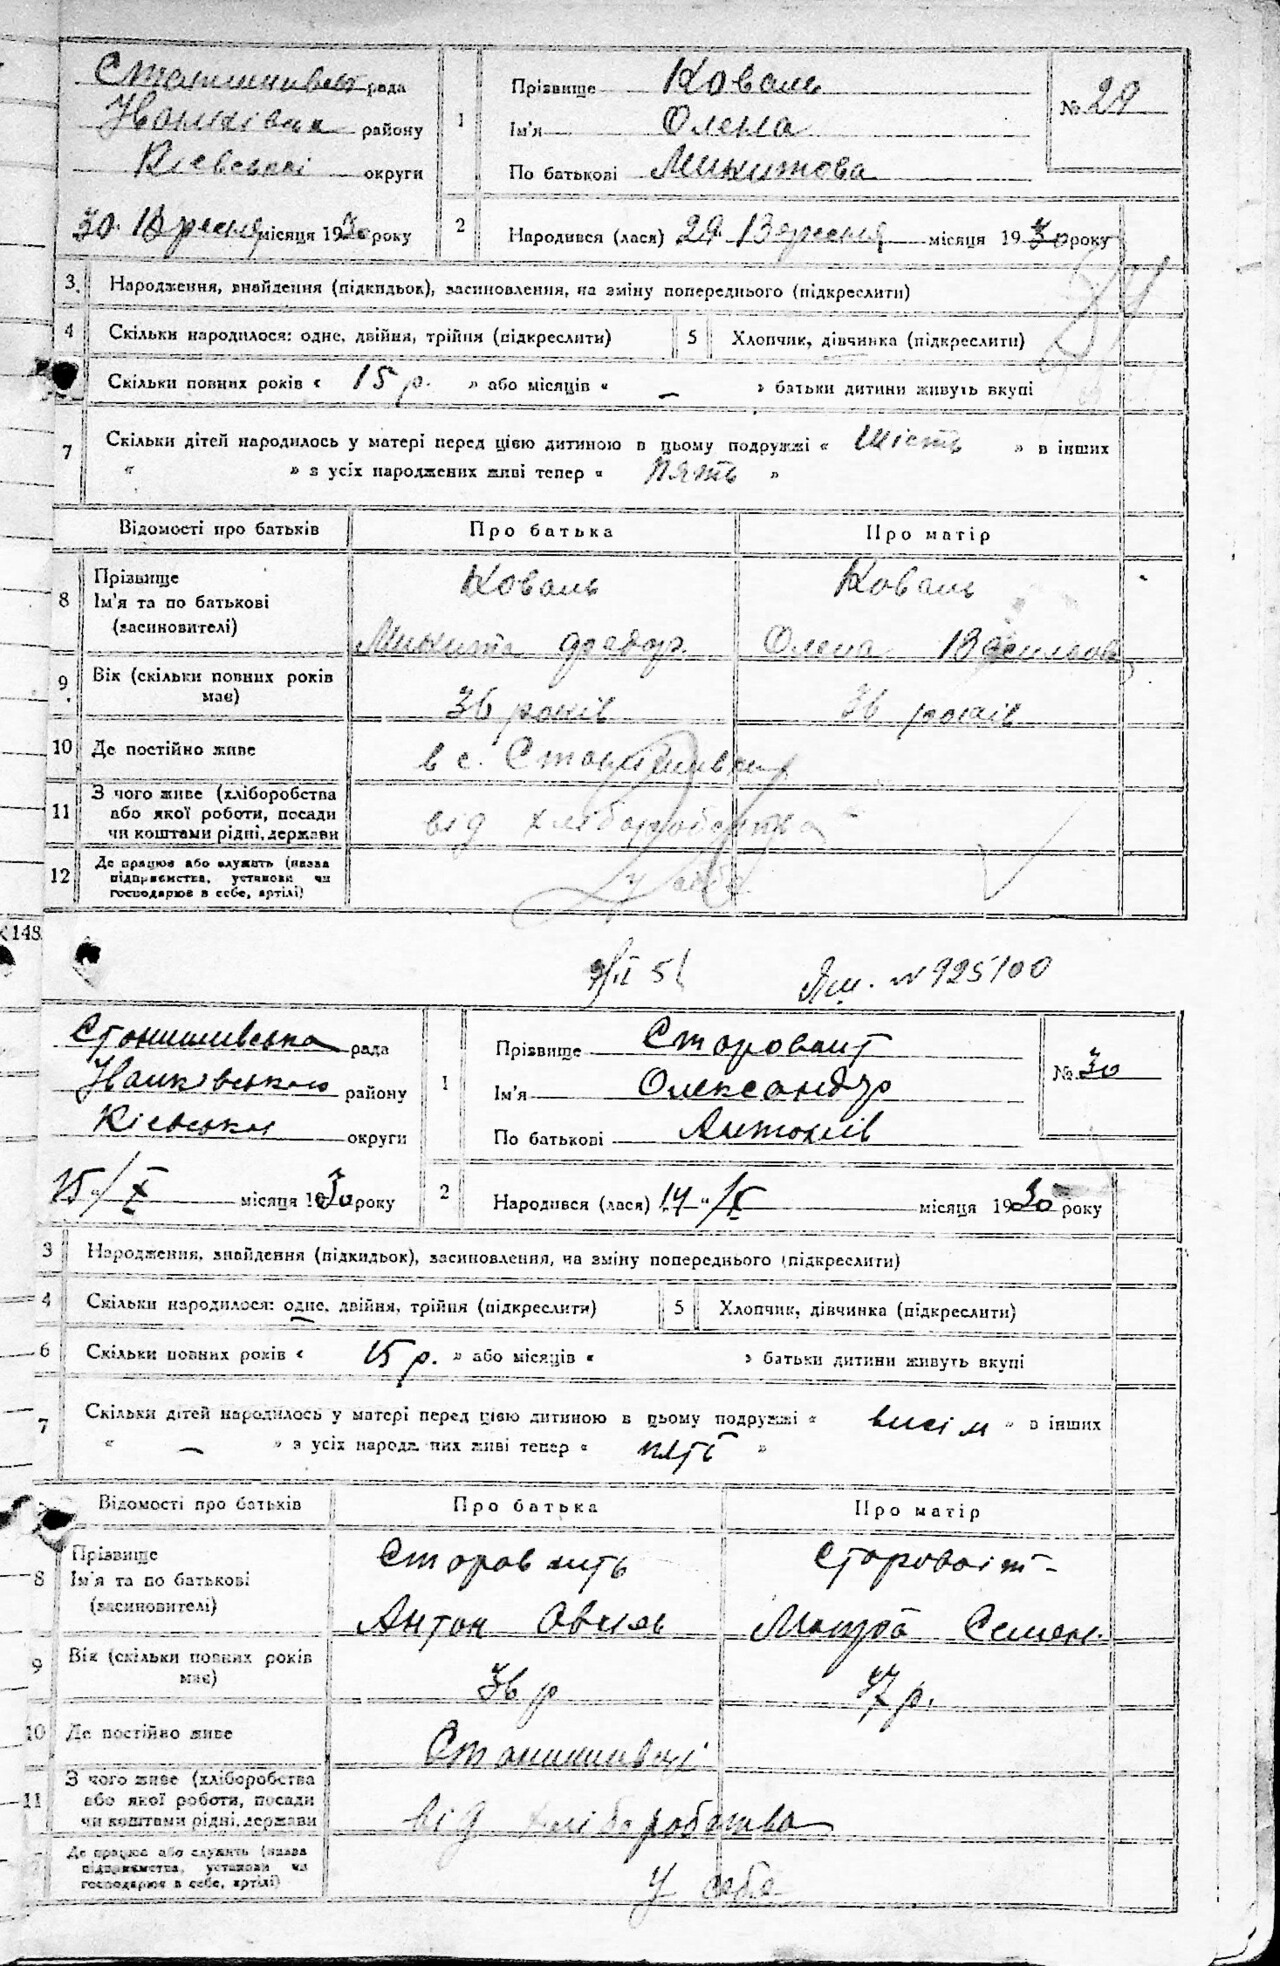 рада
району
Кієвської округи
30 Вересня місяця 1930 року
1 Прізвище Коваль
Ім'я Олена
По батькові Микитова
№ 29
2 Народився (лася) 29 Вересня місяця 1930 року
3. Народження, знайдення (підкидьок), засиновлення, на зміну попереднього (підкреслити)
4 Скільки народилося: одне, двійня, трійня (підкреслити) 5 Хлопчик, дівчинка (підкреслити)
Скільки повних років « 15 р. » або місяців « — » батьки дитини живуть вкупі
7 Скільки дітей народилось у матері перед цією дитиною в цьому подружжі « Шість » в інших
« » з усіх народжених живі тепер « Пять »
Відомості про батьків Про батька Про матір
8 Прізвище Коваль Коваль
Ім'я та по батькові
(засиновителі) Микита Федор. Олена
9 Вік (скільки повних років має) 36 років 36 років
10 Де постійно живе в с.
11 З чого живе (хліборобства
або якої роботи, посади від хліборобства
чи коштами рідні, держави
12 Де працює або служить (назва
підприємства, установи чи у себе
господарює в себе, артілі)
148
51 № 925100
Станишивська рада
району
Кієвської округи
15/X місяця 1930 року
1 Прізвище Старовойт
Ім'я Олександр
По батькові Антонів
№ 30
2 Народився (лася) 14/X місяця 1930 року
3 Народження, знайдення (підкидьок), засиновлення, на зміну попереднього (підкреслити)
4 Скільки народилося: одне, двійня, трійня (підкреслити) 5 Хлопчик, дівчинка (підкреслити)
6 Скільки повних років « 15 р. » або місяців « » батьки дитини живуть вкупі
7 Скільки дітей народилось у матері перед цією дитиною в цьому подружжі « висім » в інших
« — » з усіх народжених живі тепер « пять »
Відомості про батьків Про батька Про матір
8 Прізвище
Ім'я та по батькові
(засиновителі) Антон Семен.
9 Вік (скільки повних років має) 36 р 37 р.
10 Де постійно живе
11 З чого живе (хліборобства
або якої роботи, посади від хліборобства
чи коштами рідні, держави
Де працює або служить (назва
підприємства, установи чи у себе
господарює в себе, артілі)